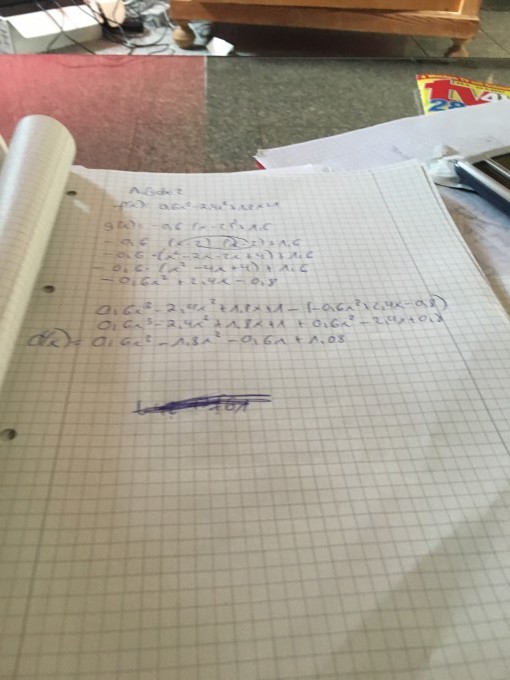 TV 4
28
f(x) = 0,6x³-2,4x²+1,8x+1
g(x) = -0,6 · (x-2)²+1,6
-0,6 · (x-2) · (x-2)+1,6
-0,6 · (x²-2x-2x+4)+1,6
-0,6 · (x²-4x+4)+1,6
-0,6x²+2,4x-0,8
0,6x³-2,4x²+1,8x+1-(-0,6x²+2,4x-0,8)
0,6x³-2,4x²+1,8x+1+0,6x²-2,4x+0,8
d(x) = 0,6x³-1,8x²-0,6x+1,08